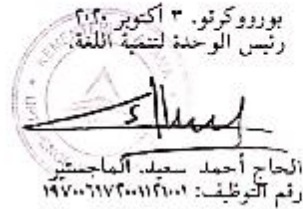 بورووكرتو، ٣ أكتوبر ٢٠٢٠
رئيس الوحدة لتنمية اللغة،
الحاج أحمد سعيد، الماجستير
رقم التوظيف: ١٩٧٠٠٦١٧٢٠٠١١٢١٠٠١